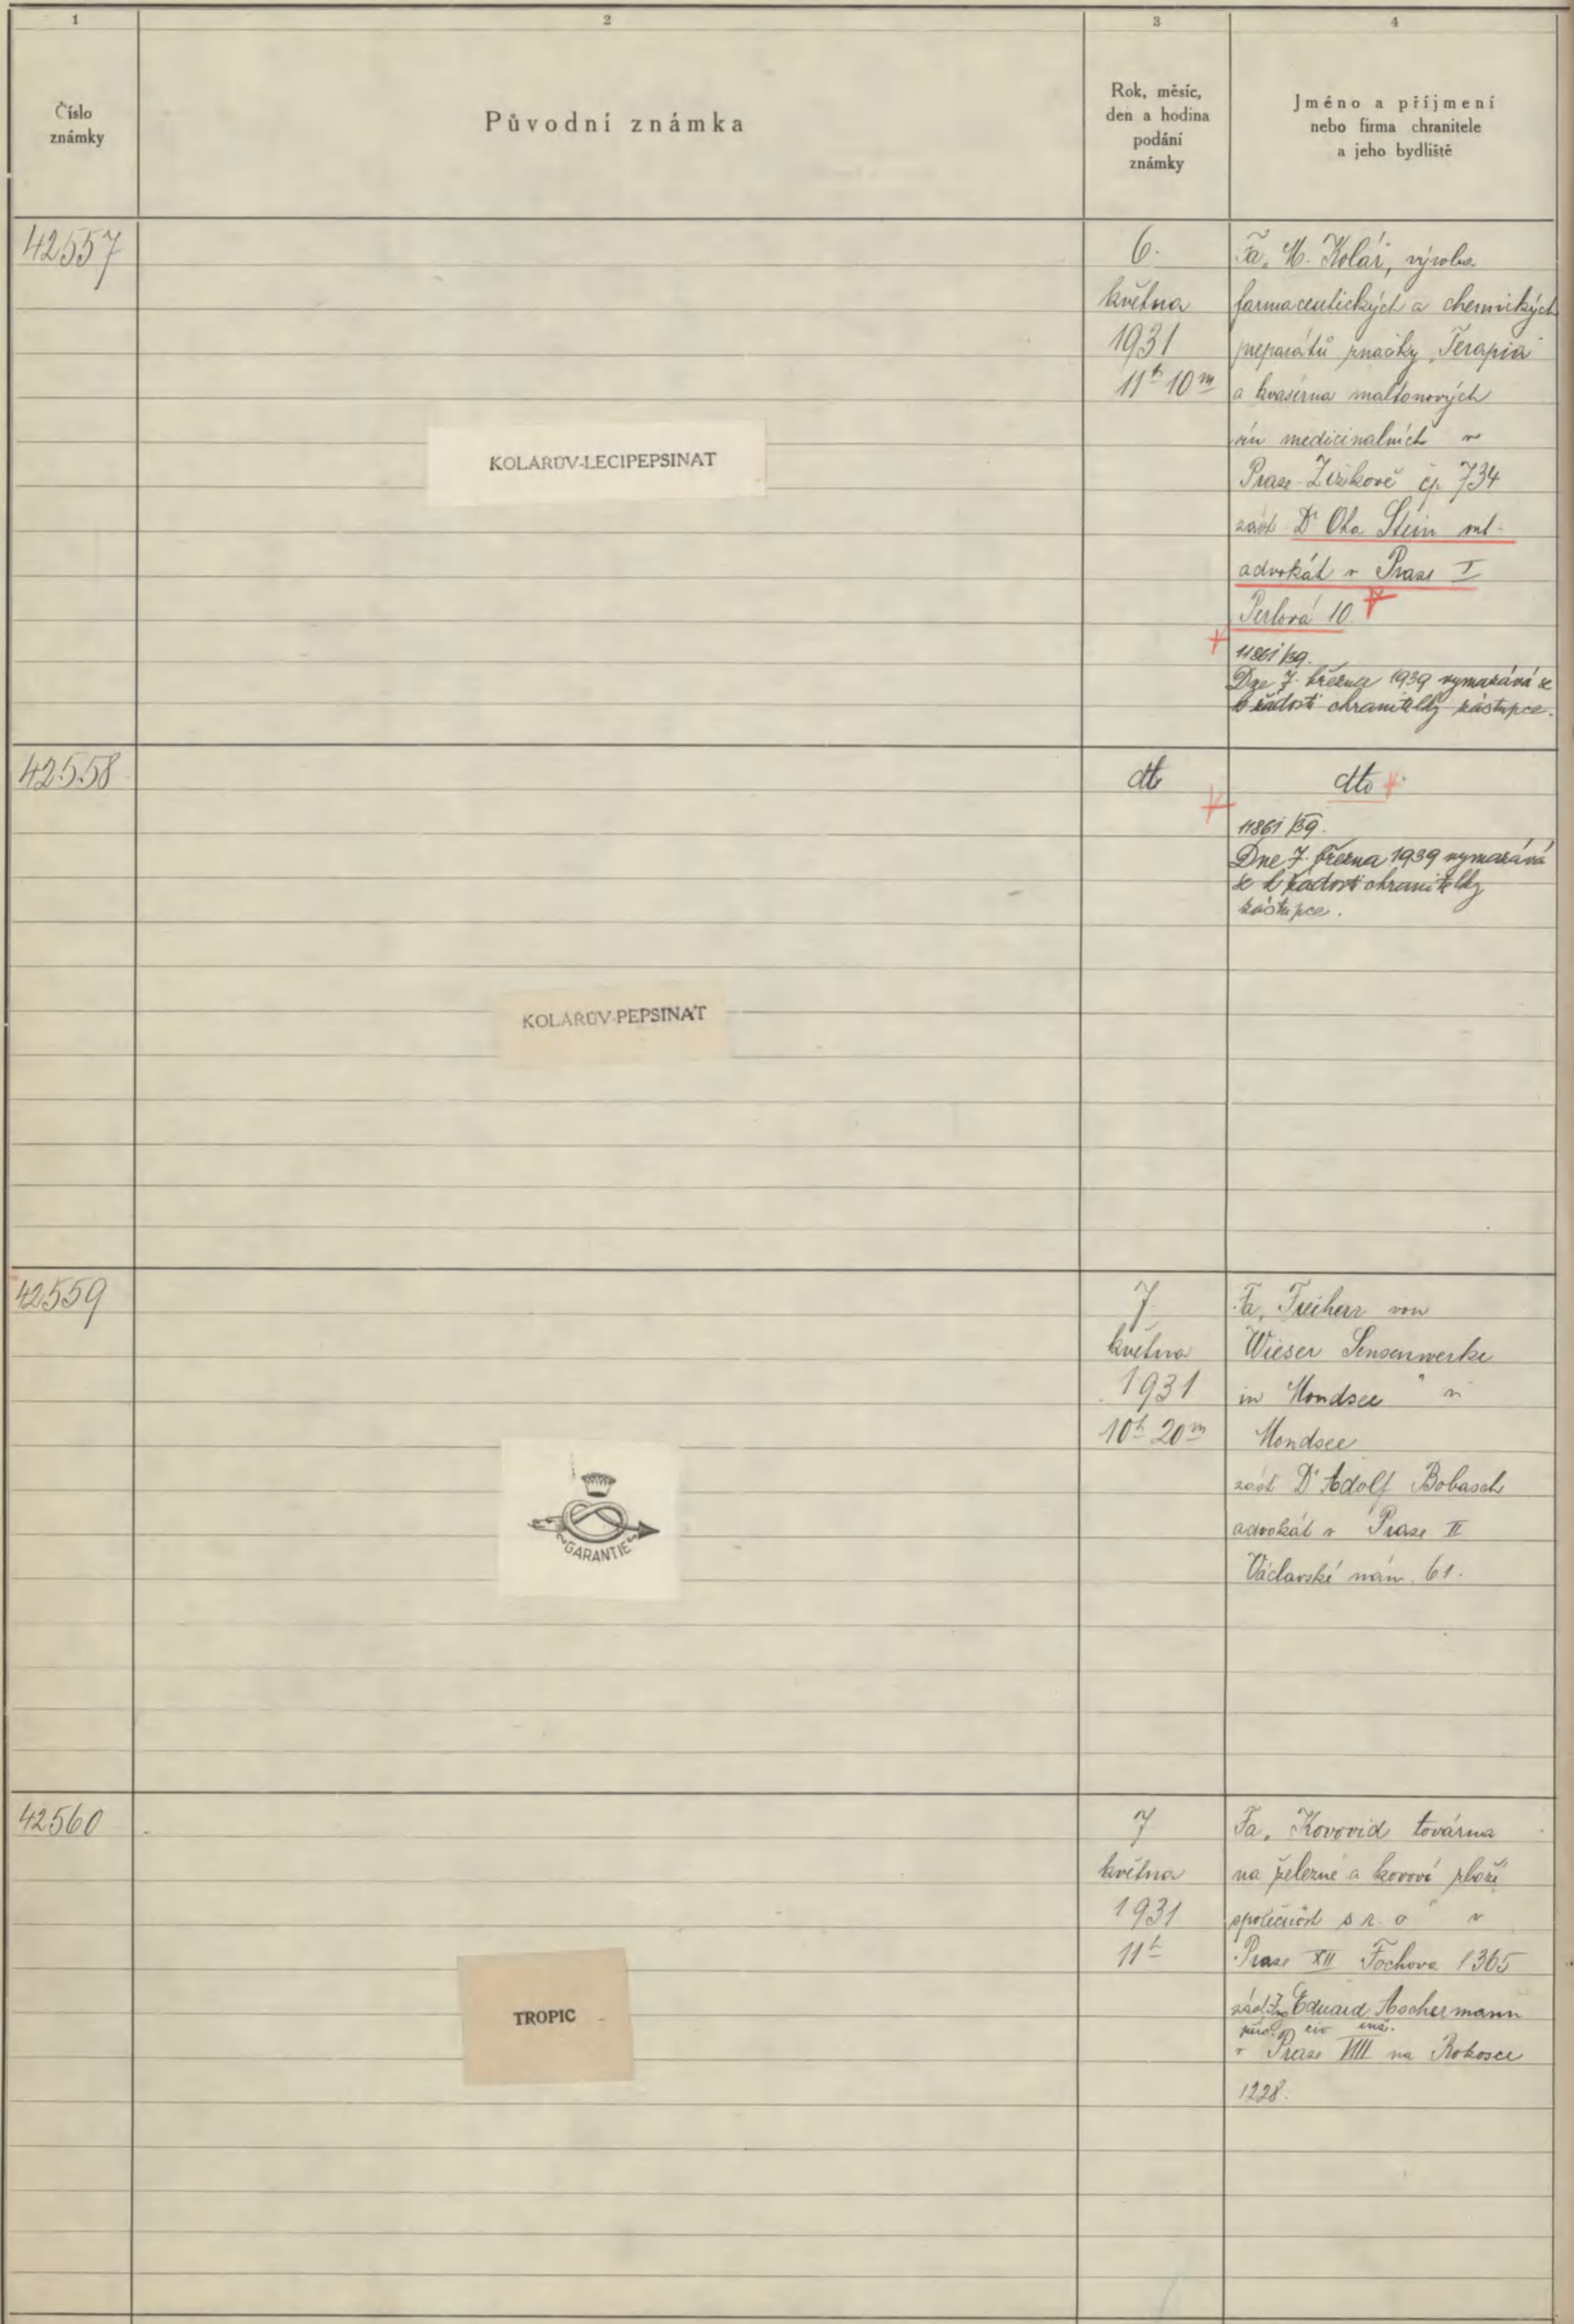 1
2
3
4
Číslo
známky
Původní známka
Rok, měsíc,
den a hodina
podání
známky
Jméno a příjmení
nebo firma chranitele
a jeho bydliště
42557
KOLÁRŮV-LECIPEPSINAT
6.
května
1931
11h 10m
Fa. M. Kolář, výroba
farmaceutických a chemických
preparátů značky „Terapia"
a kvasírna maltonových
vín medicinalních v
Praze Žižkově čp. 734
zást. Dr Ota Stein ml.
advokát v Praze I
Perlová 10.
11861/39.
Dne 7. března 1939 vymazává se
k žádosti chranitelky zástupce.
42558
KOLÁRŮV-PEPSINAT
dto
dto
11861/39.
Dne 7. března 1939 vymazává
se k žádosti chranitelky
zástupce.
42559
GARANTIE
7.
května
1931
10h 20m
Fa. Freiherr von
Wieser Sensenwerke
in Mondsee" v
Mondsee
zást. Dr Adolf Bobasch
advokát v Praze II
Václavské nám. 61.
42560
TROPIC
7
května
1931
11h
Fa. Kovovid továrna
na železné a kovové zboží
společnost s r. o" v
Praze XII Fochova 1365
zást. Ing Eduard Aschermann
civ. inž.
v Praze VIII na Rokosce
1228.